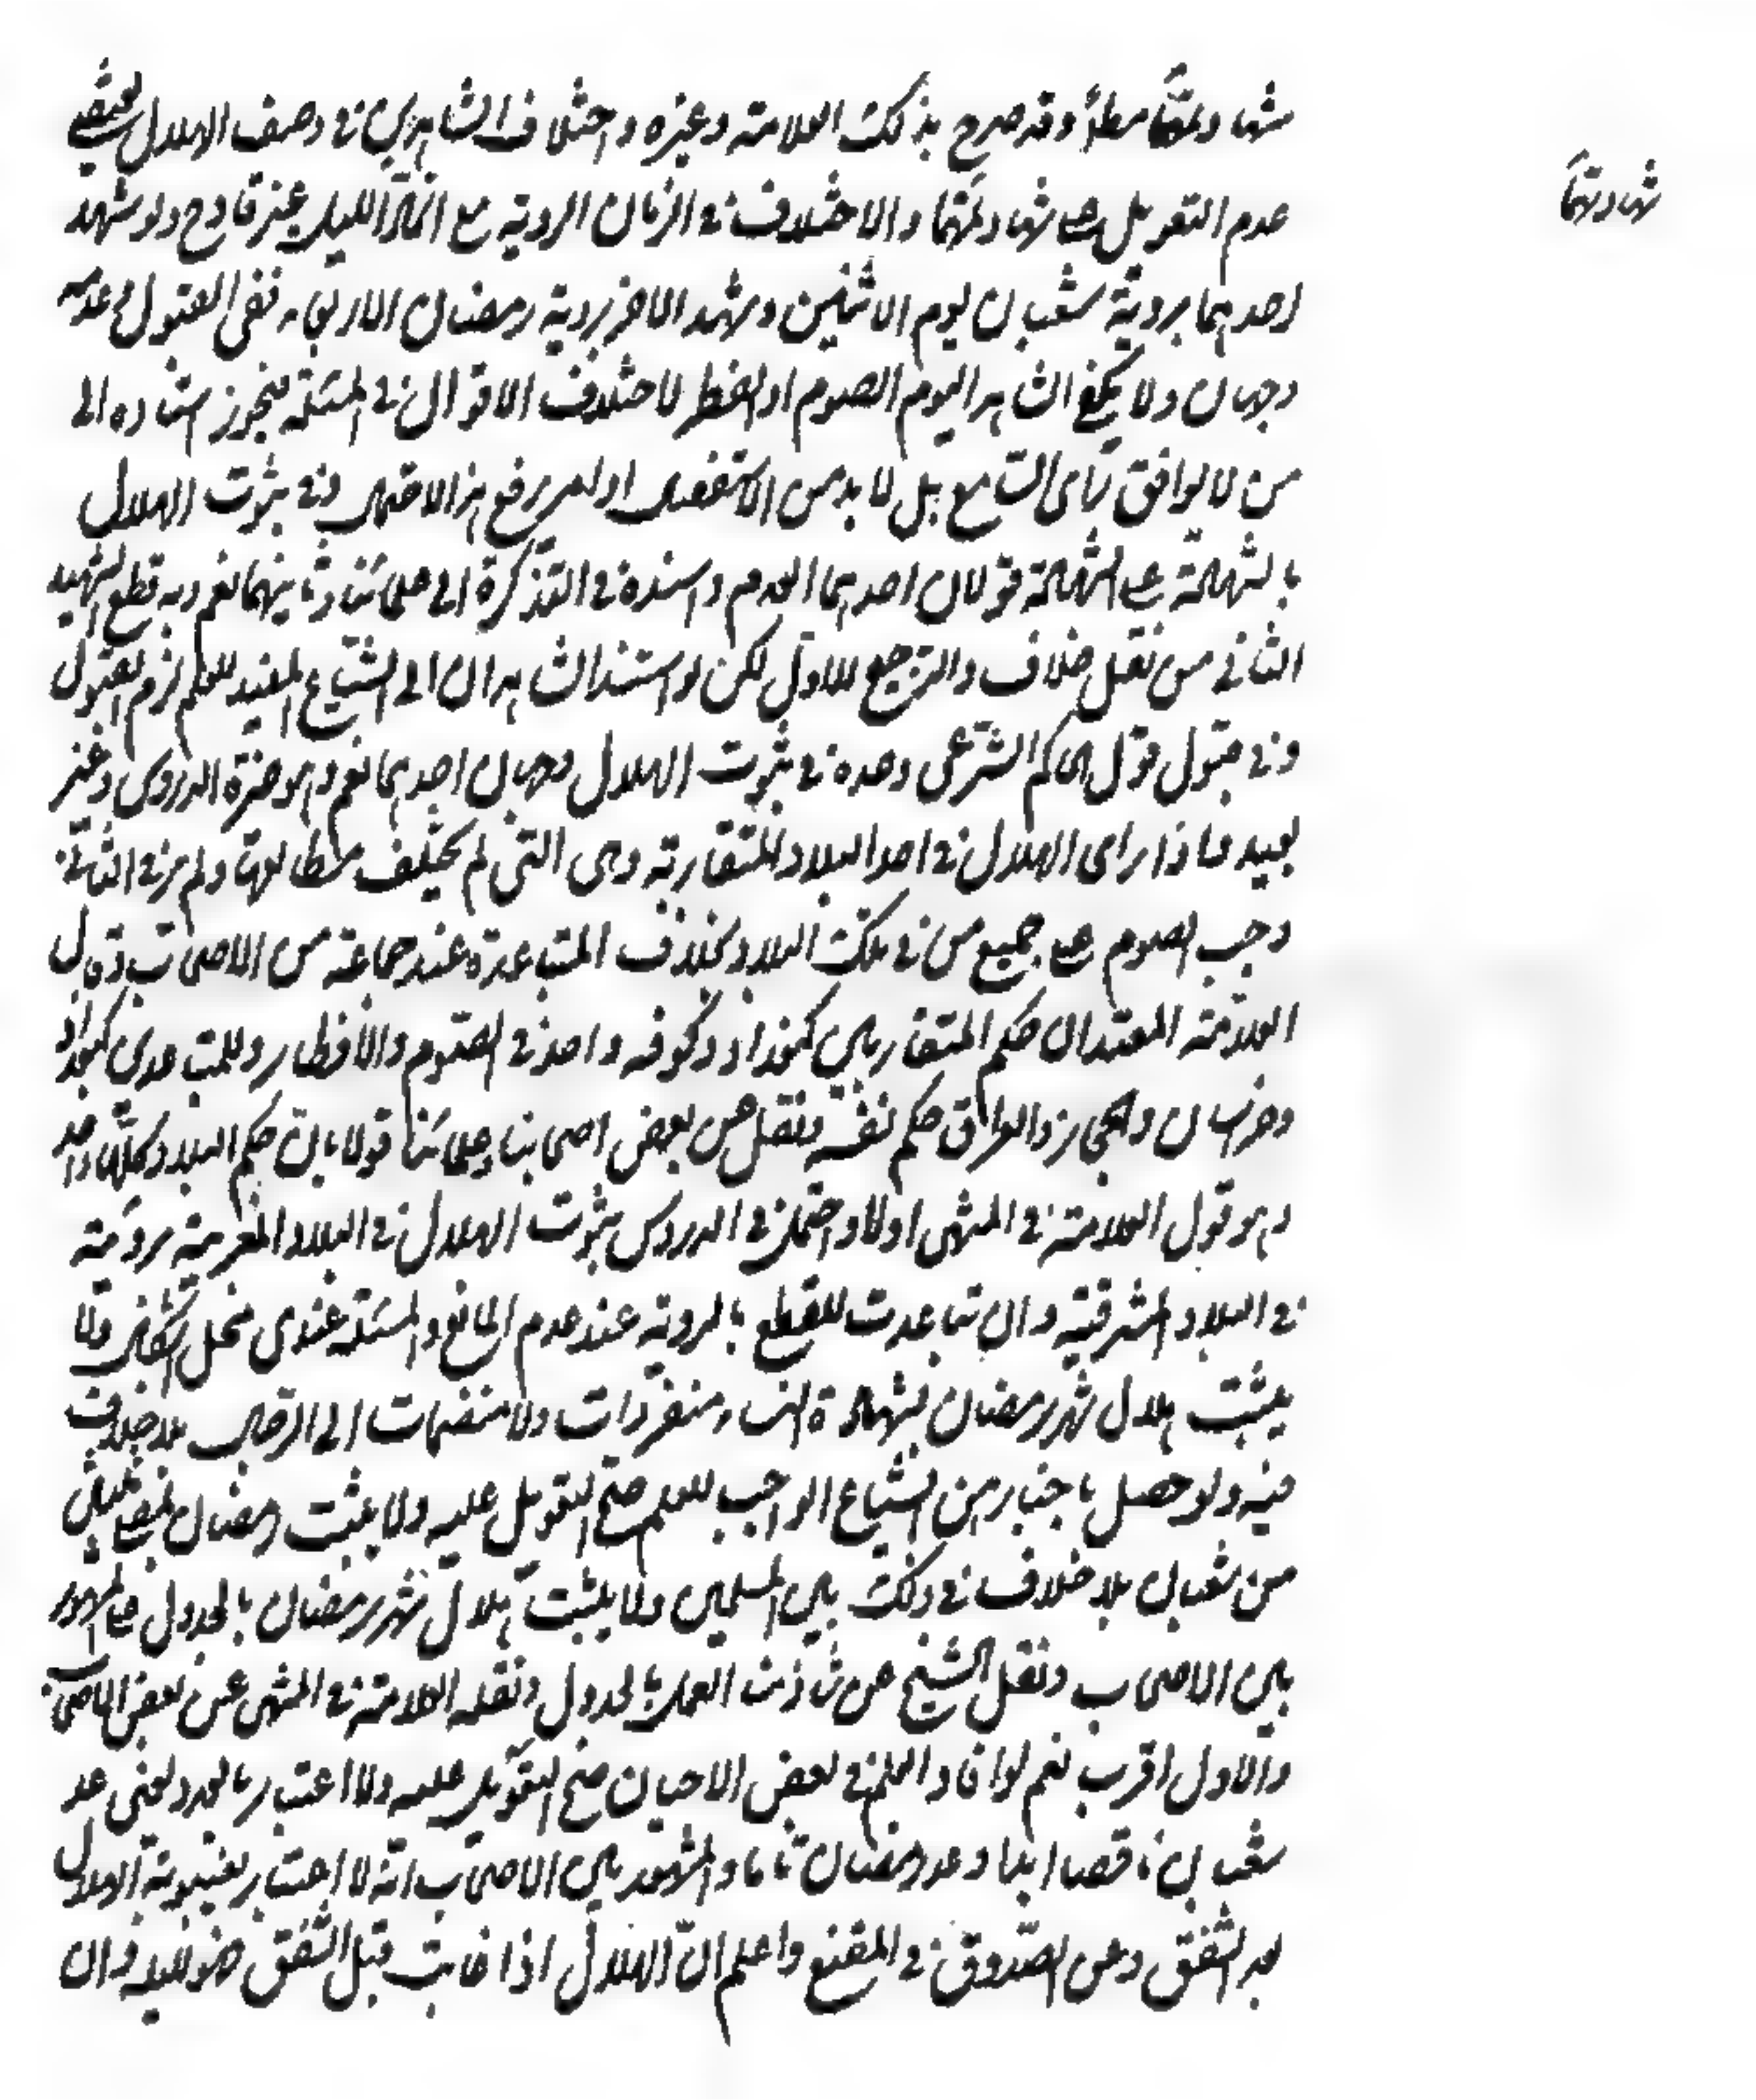 شهادتهما مطلقا وقد صرح بذلك العلامة وغيره واختلاف الشاهدين في وصف الهلال يقتضي
شهادتهما
عدم التعويل على شهادتهما والاختلاف في الزمان الروية مع اتحاد الليل غير قادح ولو شهد
احدهما بروية شعبان يوم الاثنين وشهد الاخر بروية رمضان الاربعاء ففى القبول وعدمه
وجهان ولا يكفى الشاهد اليوم الصوم او الفطر لاختلاف الاقوال في المسئلة فيجوز استناده الى
من لا يوافق راى السامع بل لا بد من الاستفصال او امر يرفع هذا الاحتمال وفى ثبوت الهلال
بالشهادة على الشهادة قولان احدهما العدم واسنده في التذكرة الى علمائنا وثانيهما نعم وبه قطع الشهيد
الثانى من نقل خلاف والترجيح للاول لكن لو استند الشاهدان الى الشياع المفيد للعلم لزم القبول
وفى قبول قول الحاكم الشرعى وحده في ثبوت الهلال وجهان احدهما نعم وهو خيرة الدروس وغير
بعيد فاذا راى الهلال في احد البلاد المتقاربة وهى التى لم يختلف مطالعها ولم ير في الثانية
وجب الصوم على جميع من في تلك البلاد بخلاف المتباعدة عند جماعة من الاصحاب وقال
العلامة المعتمد ان حكم المتقاربين كبغداد وكوفه واحد في الصوم والافطار وللمتباعدين كبغداد
وخراسان والحجاز والعراق حكم نفسه ونقل عن بعض اصحابنا وعلمائنا قولا بان حكم البلاد كلها واحد
وهو قول العلامة في المنتهى اولا واحتمل في الدروس ثبوت الهلال في البلاد المغربية برويته
في البلاد المشرقية وان تباعدت للقطع بالروية عند عدم المانع والمسئلة عندى محل اشكال ولا
يثبت هلال شهر رمضان بشهادة النساء منفردات ولا منضمات الى الرجال بلا خلاف
فيه ولو حصل باخبارهن الشياع الواجب للعلم صح التعويل عليه ولا يثبت رمضان بمضى ثلثين
من شعبان بلا خلاف في ذلك بين المسلمين ولا يثبت هلال شهر رمضان بالجدول على المشهور
بين الاصحاب ونقل الشيخ عن شاذ منا العمل بالجدول ونقله العلامة في المنتهى عن بعض الاصحاب
والاول اقرب نعم لو افاد العلم في بعض الاحيان صح التعويل عليه ولا اعتبار بالعدد يعنى عد
شعبان ناقصا ابدا وعد رمضان تاما والمشهور بين الاصحاب انه لا اعتبار بغيبوبة الهلال
بعد الشفق وعن الصدوق في المقنع واعلم ان الهلال اذا غابت قبل الشفق فهو لليلة وان